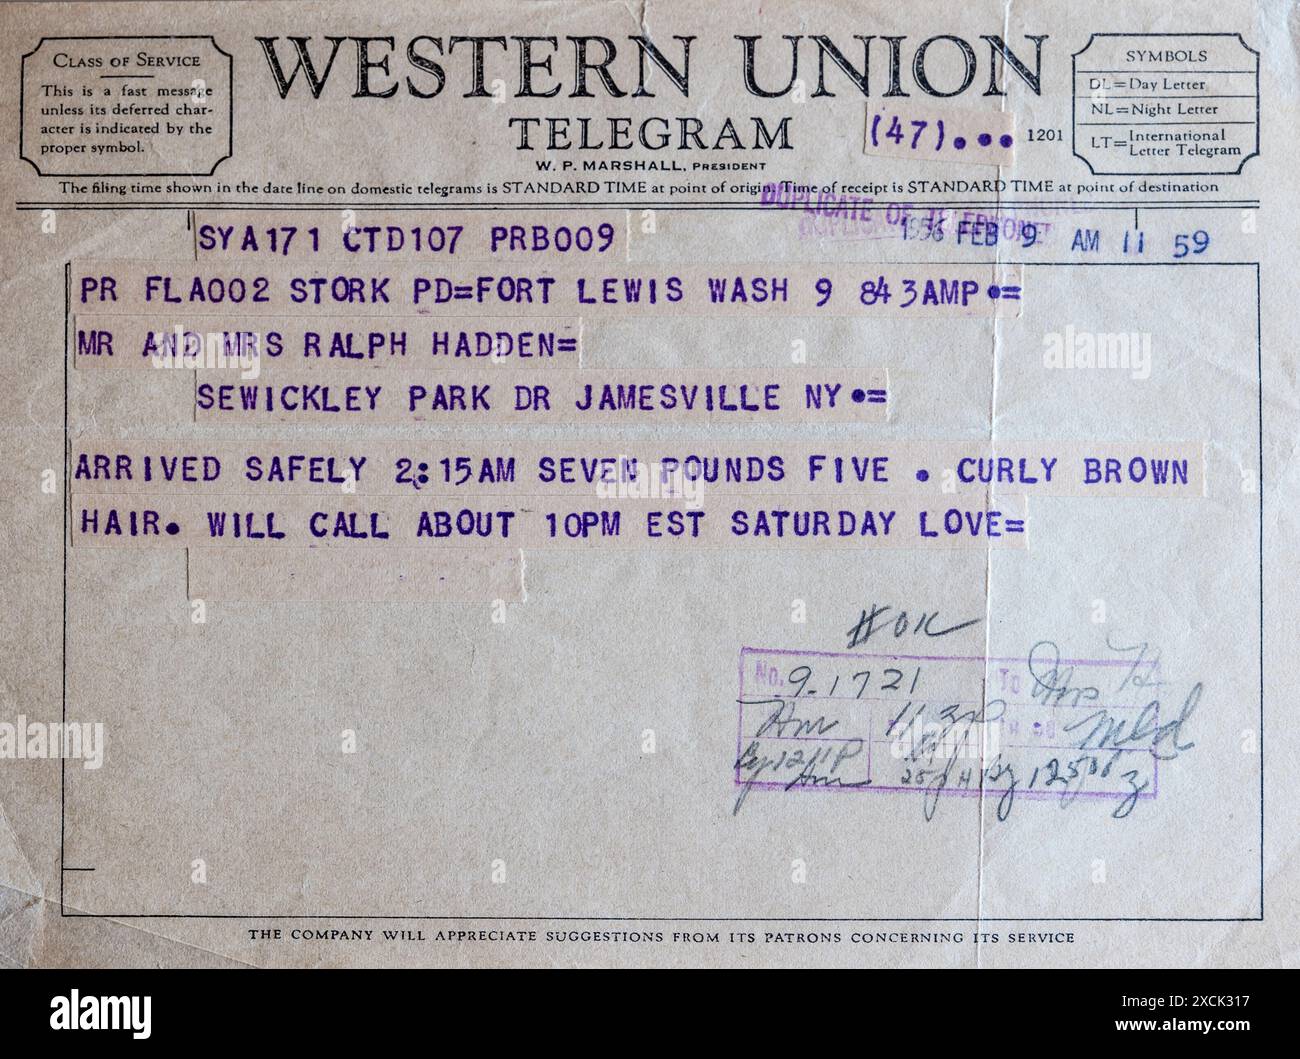 CLASS OF SERVICE
This is a fast message
unless its deferred char-
acter is indicated by the
proper symbol.
WESTERN UNION
TELEGRAM
W. P. MARSHALL, PRESIDENT
(47)...
1201
SYMBOLS
DL=Day Letter
NL=Night Letter
LT=International Letter Telegram
The filing time shown in the date line on domestic telegrams is STANDARD TIME at point of origin. Time of receipt is STANDARD TIME at point of destination
DUPLICATE OF TELEPHONED
SYA171 CTD107 PRB009
1956 FEB 9 AM 11 59
PR FLA002 STORK PD=FORT LEWIS WASH 9 843AMP.=
MR AND MRS RALPH HADDEN=
SEWICKLEY PARK DR JAMESVILLE NY.=
ARRIVED SAFELY 2:15AM SEVEN POUNDS FIVE . CURLY BROWN
HAIR. WILL CALL ABOUT 10PM EST SATURDAY LOVE=
OK
No. 9-1721 TO Mrs H
THE COMPANY WILL APPRECIATE SUGGESTIONS FROM ITS PATRONS CONCERNING ITS SERVICE
a alamy
alamy
Image ID: 2XCK317
www.alamy.com